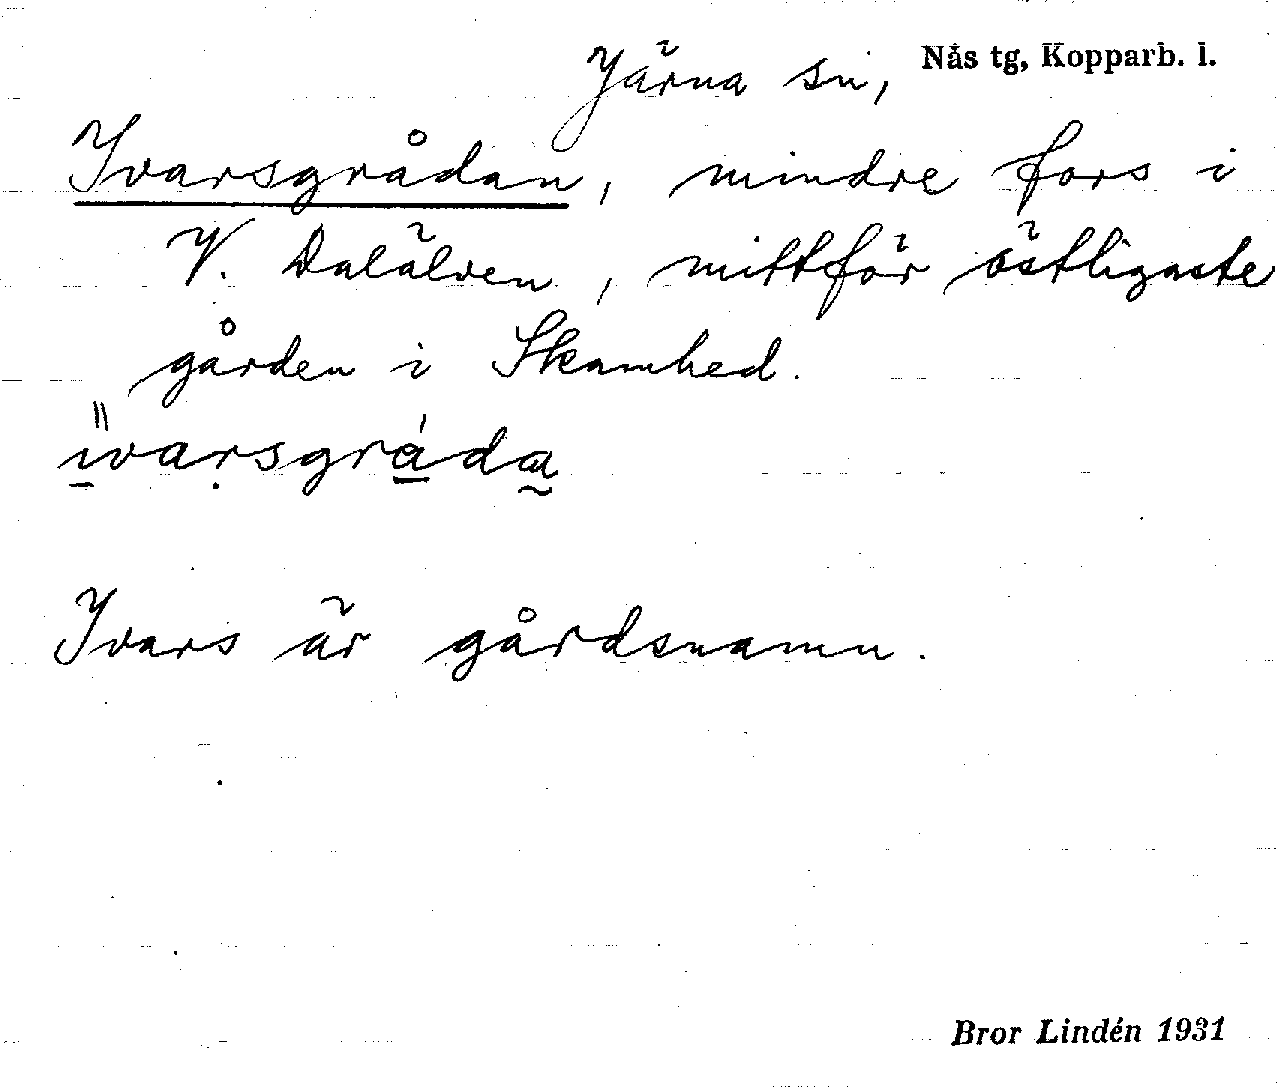 Järna sn, Nås tg, Kopparb. l.
Ivarsgrådan, mindre fors i
V. Dalälven, mittför östligaste
gården i Skamhed.
ivarsgráda
Ivars är gårdsnamn.
Bror Lindén 1931